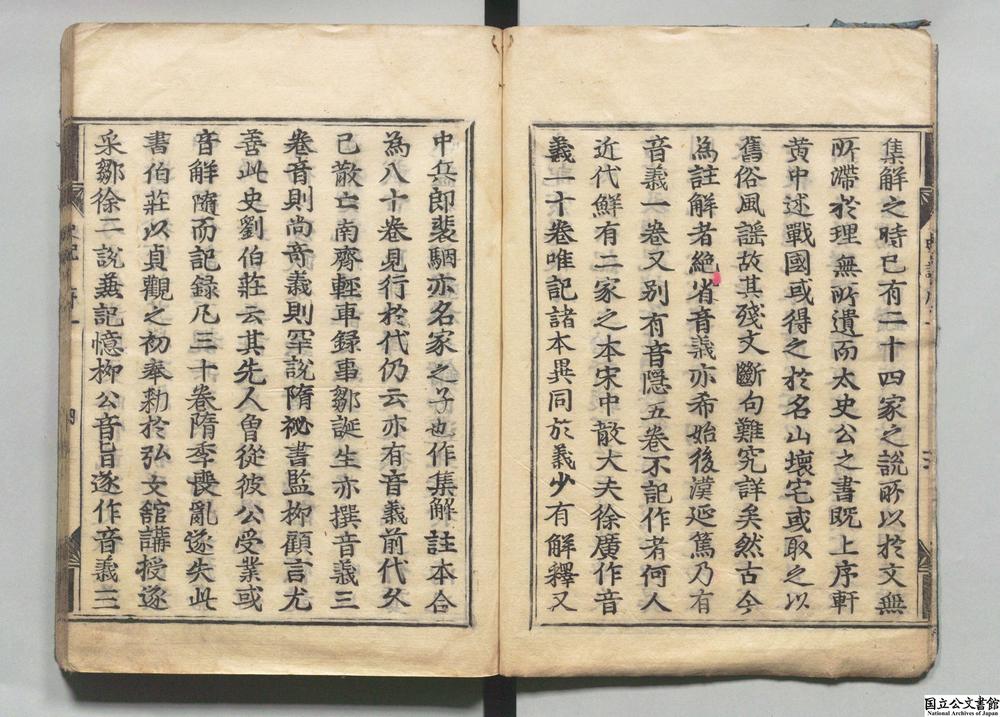 集解之時已有二十四家之說所以於文無
所滯於理無所遺而太史公之書既上序軒
黄中述戰國或得之於名山壞宅或取之以
舊俗風謡故其殘文斷句難究詳矣然古今
為註解者絶省音義亦希始後漢延篤乃有
音義一卷又别有音隱五卷不記作者何人
近代鮮有二家之本宋中散大夫徐廣作音
義一十卷唯記諸本異同於義少有解釋又
中兵郎裴駰亦名家之子也作集解註本合
為八十卷見行於代仍云亦有音義前代久
已散亡南齊輕車録事鄒誕生亦撰音義三
卷音則尚奇義則罕說隋祕書監柳顧言尤
善此史劉伯莊云其先人曽從彼公受業或
音解隨而記録凡三十卷隋季喪亂遂失此
書伯莊以貞觀之初奉勑於弘文館講授遂
采鄒徐二說兼記憶柳公音旨遂作音義二
史記 序 四
国立公文書館
National Archives of Japan